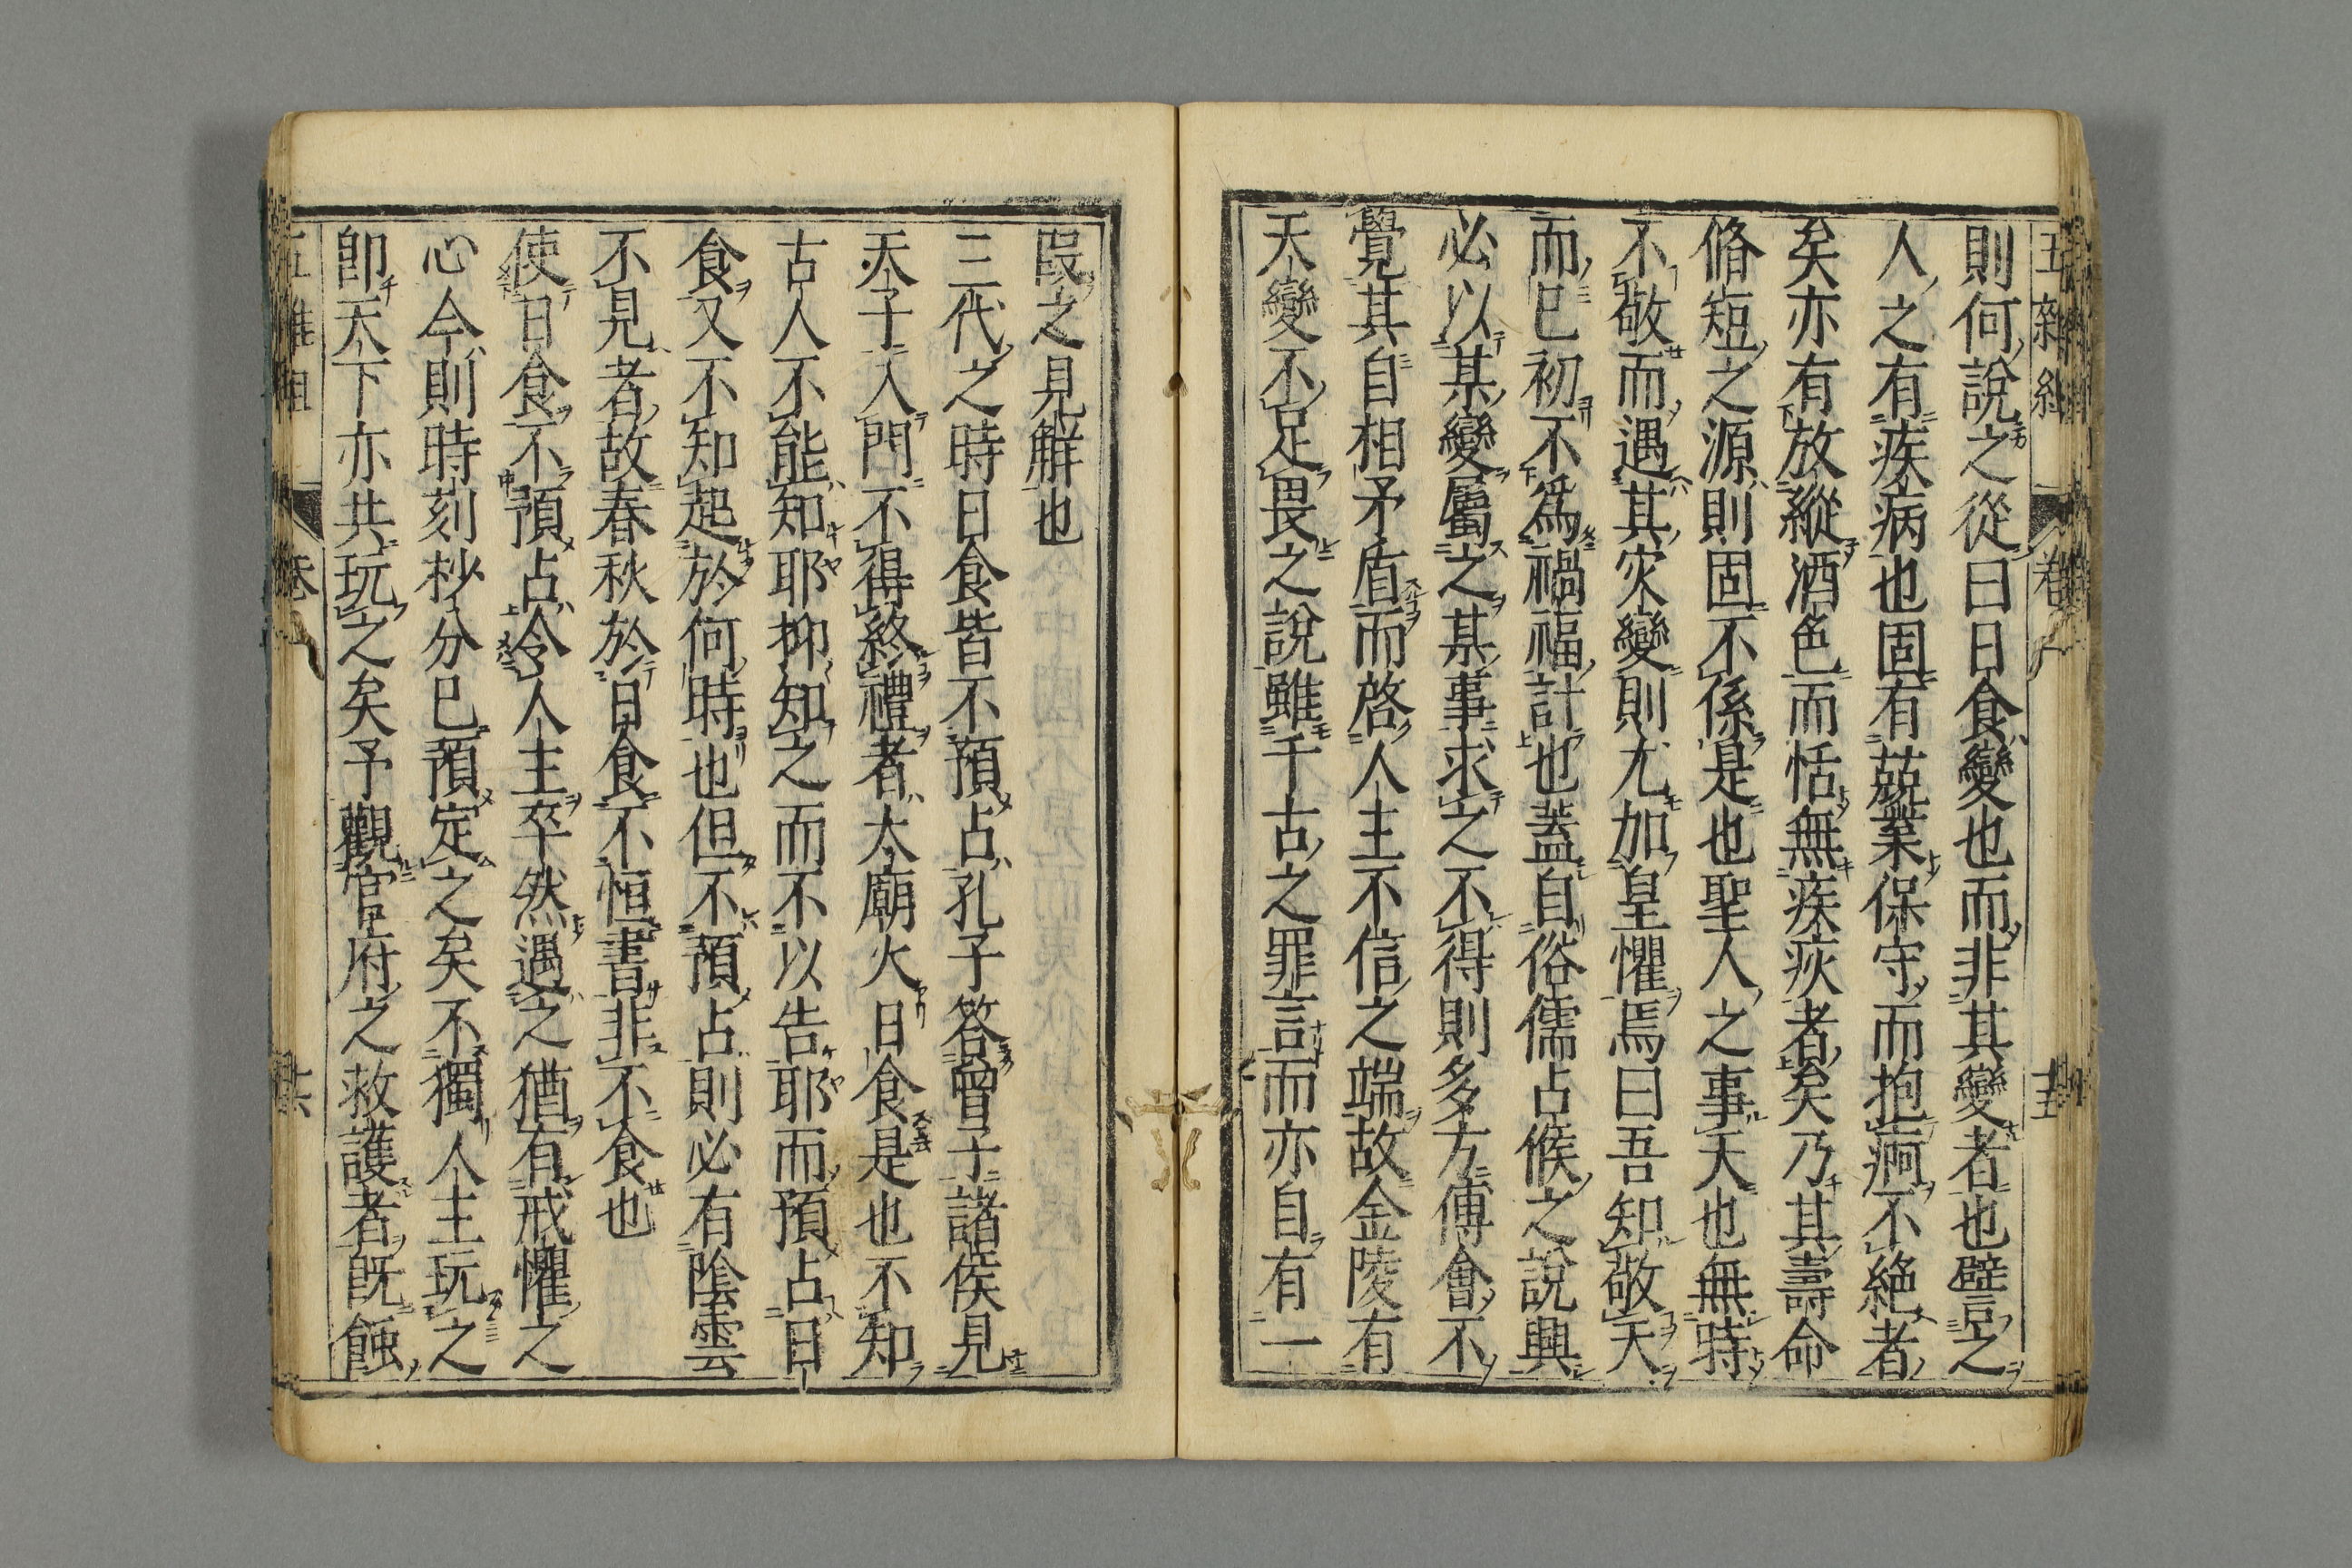 五雜組
則何說之從曰日食變也而非其變者也譬之
人之有疾病也固有兢業保守而抱痾不絶者
矣亦有放縱酒色而恬無疾疢者矣乃其壽命
脩短之源則固不係是也聖人之事天也無時
不敬而遇其灾變則尤加皇懼焉曰吾知敬天
而已初不爲禍福計也蓋自俗儒占候之說興
必以某變屬之某事求之不得則多方傅會不
覺其自相矛盾而啓人主不信之端故金陵有
天變不足畏之說雖千古之罪言而亦自有一
段之見解也
三代之時日食皆不預占孔子答曾子諸侯見
天子入門不得終禮者太廟火日食是也不知
古人不能知耶抑知之而不以告耶而預占日
食又不知起於何時也但不預占則必有陰雲
不見者故春秋於日食不恒書非不食也
使日食不預占令人主卒然遇之猶有戒懼之
心今則時刻杪分已預定之矣不獨人主玩之
卽天下亦共玩之矣予觀官府之救護者旣蝕